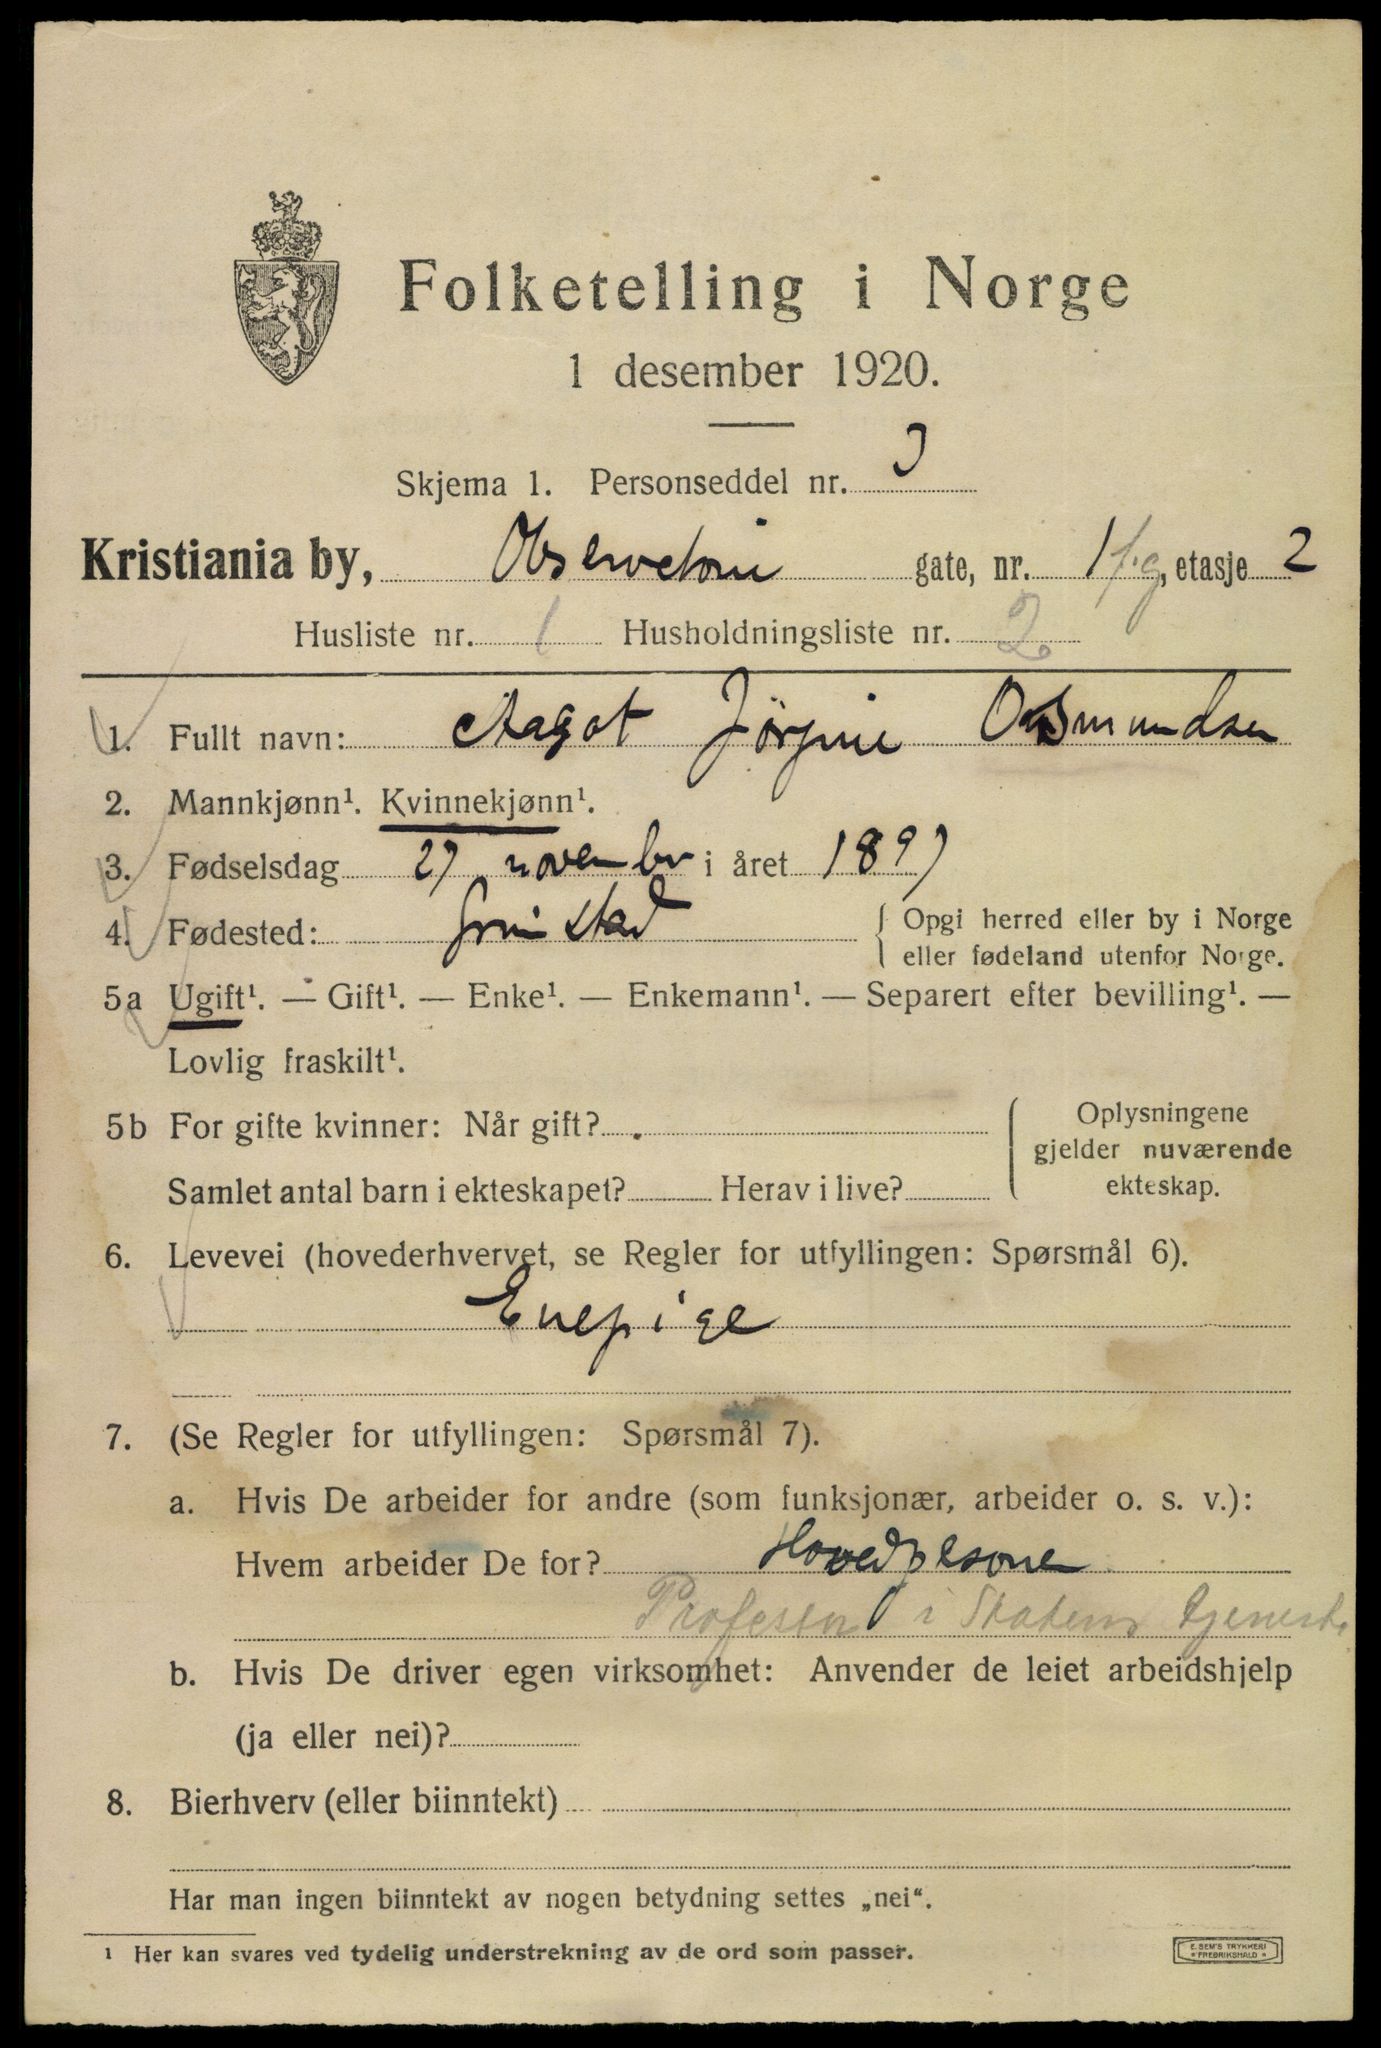 Folketelling i Norge
1 desember 1920.
Skjema 1. Personseddel nr. 3
Kristiania by, Observatorie gate, nr. 1 f.g, etasje 2
Husliste nr. 1 Husholdningsliste nr. 2
1. Fullt navn: Aagot Jørgine Osmundsen
2. Mannkjønn¹. Kvinnekjønn¹.
3. Fødselsdag 27 november i året 1897
4. Fødested: Grimstad { Opgi herred eller by i Norge
eller fødeland utenfor Norge.
5a Ugift¹. — Gift¹. — Enke¹. — Enkemann¹. — Separert efter bevilling¹. —
Lovlig fraskilt¹.
5b For gifte kvinner: Når gift?
Samlet antal barn i ekteskapet? Herav i live?
Oplysningene
gjelder nuværende
ekteskap.
6. Levevei (hovederhvervet, se Regler for utfyllingen: Spørsmål 6).
Enepige
7. (Se Regler for utfyllingen: Spørsmål 7).
a. Hvis De arbeider for andre (som funksjonær, arbeider o. s. v.):
Hvem arbeider De for? Hovedpersone
Professor i Statens tjeneste
b. Hvis De driver egen virksomhet: Anvender de leiet arbeidshjelp
(ja eller nei)?
8. Bierhverv (eller biinntekt)
Har man ingen biinntekt av nogen betydning settes „nei“.
¹ Her kan svares ved tydelig understrekning av de ord som passer.
E. SEM'S TRYKKERI
* FREDRIKSHALD *